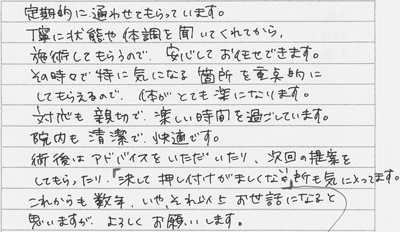 定期的に通わせてもらっています。
丁寧に状態や体調を聞いてくれてから、
施術してもらうので、安心してお任せできます。
その時々で特に気になる箇所を重点的に
してもらえるので、体がとても楽になります。
対応も親切で、楽しい時間を過ごしています。
院内も清潔で、快適です。
術後はアドバイスをいただいたり、次回の提案を
してもらったり、「決して押し付けがましくない」所も気に入ってます。
これからも数年、いや、それ以上お世話になると
思いますが、よろしくお願いします。